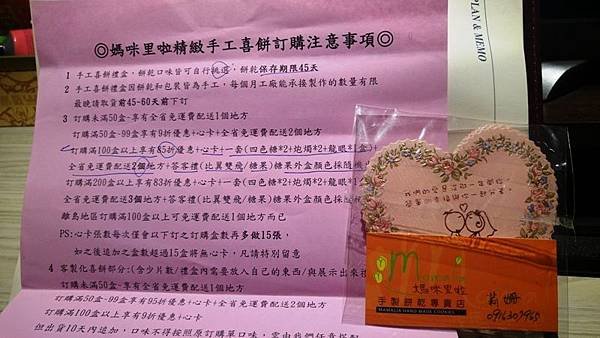 PLAN & MEMO
◎媽咪里啦精緻手工喜餅訂購注意事項◎
1 手工喜餅禮盒,餅乾口味皆可自行挑選,餅乾保存期限45天
2 手工喜餅禮盒因餅乾和包裝皆為手工,每個月工廠能承接製作的數量有限
最晚請取貨前45-60天前下訂
3 訂購未滿50盒-享有全省免運費配送1個地方
訂購滿50盒-99盒享有9折優惠+心卡+全省免運費配送2個地方
訂購滿100盒以上享有85折優惠+心卡+一套(四色糖*2+炮燭*2+龍眼*1盒)+
全省免運費配送2個地方+答客禮(比翼雙飛/糖果)糖果外盒顏色採隨機
訂購滿200盒以上享有83折優惠+心卡+一套(四色糖*2+炮燭*2+龍眼*
全省免運費配送3個地方+答客禮(比翼雙飛/糖果)糖果外盒顏色採隨機
離島地區訂購滿100盒以上可免運費配送1個地方而已
PS:心卡張數每次僅會以下訂之訂購盒數再多做15張,
如之後追加之盒數超過15盒將無心卡,凡請特別留意
4 客製化喜餅部分:(含少片數/禮盒內需要放入自己的東西/與展示出來
訂購未滿50盒-享有全省免運費配送1個地方
訂購滿50盒-99盒享有95折優惠+心卡+全省免運費配送2個地方
訂購滿100盒以上享有9折優惠+心卡
但出貨10天內追加,口味不得按照原訂購單口味,需由我們任意搭配
媽咪里啦
手製餅乾專賣店
MAMALIA HAND MADE COOKIES
莉姍
0916307965